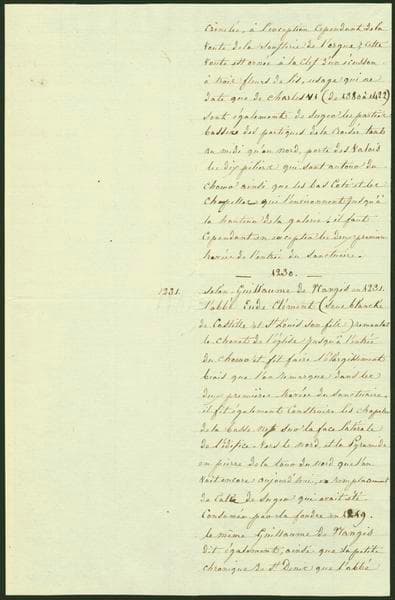 croisées, à l'exception cependant de la
voute de la soufflerie de l'orgue; cette
voute est ornée à la clef d'un écusson
à trois fleurs de lis, usage qui ne
date que de Charles VI (de 1380 à 1422)
sont également de suger les parties
basses des portiques de la croisée tant
au midi qu'au nord, porte des Valois
les dix piliers qui sont autour du
choeur ainsi que les bas coté et les
chapelles qui l'environnent jusqu'à
la hauteur de la galerie, il faut
cependant en excepter les deux premiers
travées de l'entrée du sanctuaire.
— 1230. —
1231. selon Guillaume de Nangis en 1231.
l'abbé Eude Clément (sous blanche
de Castille et St Louis son fils) remonter
le chevet de l'église jusqu'à l'entrée
du choeur et fit faire l'élargissement
biais que l'on remarque dans les
deux premières travées du sanctuaire.
il fit également construire les chapelles
de la basse nef sur la face latérale
de l'édifice vers le nord et la Pyramide
en pierre de la tour du nord que l'on
voit encore aujourd'hui, en remplacement
de celle de suger qui avait été
consumée par la foudre en 1219.
le même Guillaume de Nangis
dit également, ainsi que la petite
chronique de St Denis que l'abbé